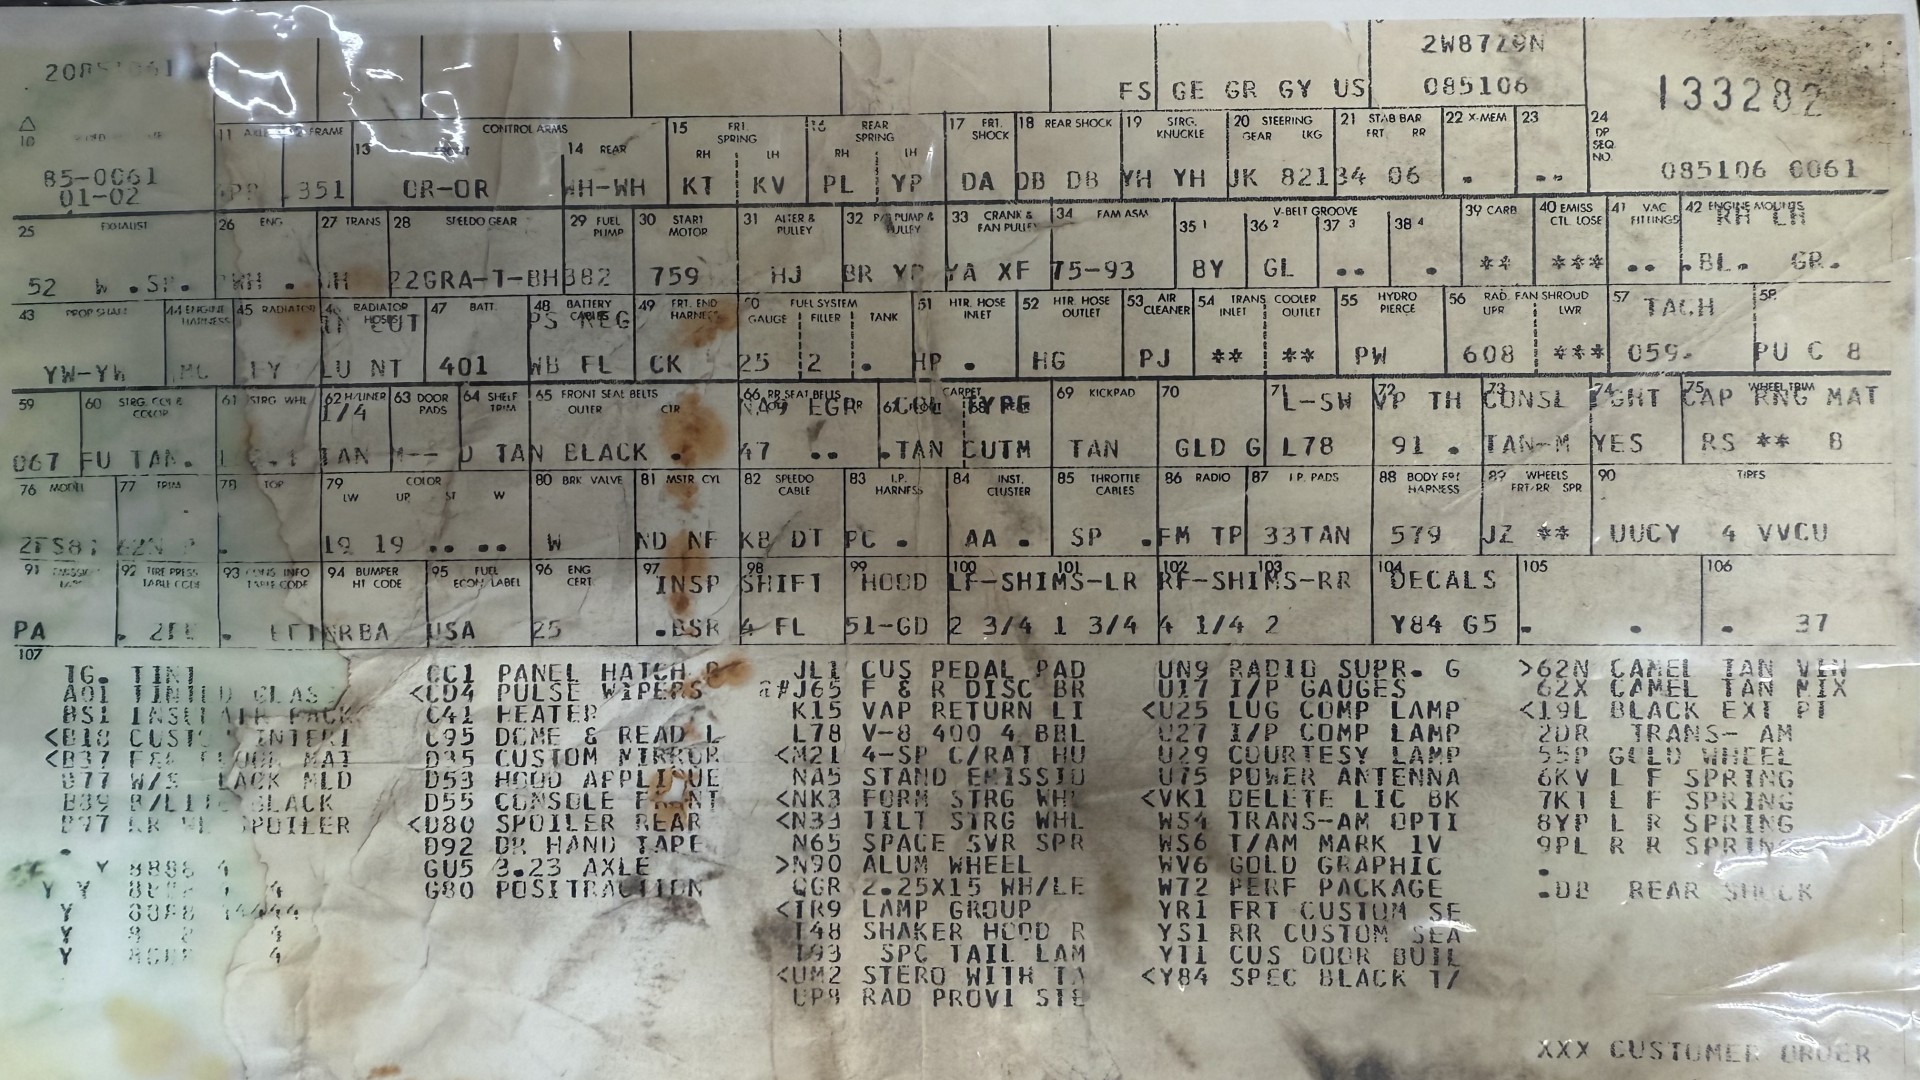 2W8729N
FS GE GR GY US 085106 133282
10 11 AXLE 12 FRAME 13 CONTROL ARMS 14 REAR 15 FRT. SPRING RH LH 16 REAR SPRING RH LH 17 FRT. SHOCK 18 REAR SHOCK 19 STRG. KNUCKLE 20 STEERING GEAR LKG 21 STAB BAR FRT RR 22 X-MEM 23 24 DP SEQ. NO.
85-0061
01-02 351 OR-OR WH-WH KT KV PL YP DA DB DB YH YH JK 821 34 06 . .. 085106 0061
25 EXHAUST 26 ENG 27 TRANS 28 SPEEDO GEAR 29 FUEL PUMP 30 START MOTOR 31 ALTER & PULLEY 32 P/S PUMP & PULLEY 33 CRANK & FAN PULLEY 34 FAM ASM V-BELT GROOVE 35 1 36 2 37 3 38 4 39 CARB 40 EMISS CTL LOSE 41 VAC FITTINGS 42 ENGINE MOUNTS RH LH
52 W . 22GRA-T-BH 382 759 HJ BR YP YA XF 75-93 8Y GL .. . ** *** .. .BL. GR.
43 PROP SHAFT 44 ENGINE HARNESS 45 RADIATOR 46 RADIATOR HOSES IN OUT 47 BATT. 48 BATTERY CABLES PS NEG 49 FRT. END HARNESS 50 FUEL SYSTEM GAUGE FILLER TANK 51 HTR. HOSE INLET 52 HTR. HOSE OUTLET 53 AIR CLEANER 54 TRANS COOLER INLET OUTLET 55 HYDRO PIERCE 56 RAD. FAN SHROUD UPR LWR 57 TACH 58
YW-YW LU NT 401 WB FL CK 25 2 . HP . HG PJ ** ** PW 608 *** 059. PU C 8
59 60 STRG. COL & COLOR 61 STRG WHL 62 H/LINER 1/4 63 DOOR PADS 64 SHELF TRIM 65 FRONT SEAT BELTS OUTER CTR 66 RR SEAT BELTS CARPET COL TYPE 69 KICKPAD 70 71 L-SW 72 VP TH 73 CONSL 74 75 WHEEL TRIM CAP RNG MAT
067 FU TAN. TAN M-- D TAN BLACK . 47 .. .TAN CUTM TAN GLD G L78 91 . TAN-M YES RS ** 8
76 MODEL 77 TRIM 78 TOP 79 COLOR LW UP ST W 80 BRK VALVE 81 MSTR CYL 82 SPEEDO CABLE 83 I.P. HARNESS 84 INST. CLUSTER 85 THROTTLE CABLES 86 RADIO 87 I.P. PADS 88 BODY FRT HARNESS 89 WHEELS FRT/RR SPR 90 TIRES
2FS87 62N . 19 19 .. .. W ND NF KB DT PC . AA . SP .FM TP 33TAN 579 JZ ** UUCY 4 VVCU
91 92 TIRE PRESS TABLE CODE 93 CONS INFO TABLE CODE 94 BUMPER HT CODE 95 FUEL ECON LABEL 96 ENG CERT 97 INSP 98 SHIFT 99 HOOD 100 LF-SHIMS-LR 101 102 RF-SHIMS-RR 103 104 DECALS 105 106
PA . . USA 25 .BSR 4 FL 51-GD 2 3/4 1 3/4 4 1/4 2 Y84 G5 . . . 37
107
TG. TINT
A01 TINTED GLAS
<B18 CUSTO INTERI
<B37 MAT
W/S LACK MLD
BLACK
SPOILER
CC1 PANEL HATCH R
<CD4 PULSE WIPERS
C41 HEATER
C95 DOME & READ L
D35 CUSTOM MIRROR
D53 HOOD APPLIQUE
D55 CONSOLE FRONT
<D80 SPOILER REAR
D92 DR HAND TAPE
GU5 3.23 AXLE
G80 POSITRACTION
JL1 CUS PEDAL PAD
#J65 F & R DISC BR
K15 VAP RETURN LI
L78 V-8 400 4 BBL
<M21 4-SP C/RAT HU
NA5 STAND EMISSIO
<NK3 FORM STRG WHL
<N33 TILT STRG WHL
N65 SPACE SVR SPR
>N90 ALUM WHEEL
QGR 2.25X15 WH/LE
<TR9 LAMP GROUP
T48 SHAKER HOOD R
T93 SPC TAIL LAM
<UM2 STERO WITH TA
UP8 RAD PROVI STE
UN9 RADIO SUPR. G
U17 I/P GAUGES
<U25 LUG COMP LAMP
U27 I/P COMP LAMP
U29 COURTESY LAMP
U75 POWER ANTENNA
<VK1 DELETE LIC BK
WS4 TRANS-AM OPTI
WS6 T/AM MARK 1V
WV6 GOLD GRAPHIC
W72 PERF PACKAGE
YR1 FRT CUSTOM SE
YS1 RR CUSTOM SEA
YT1 CUS DOOR BUIL
<Y84 SPEC BLACK T/
>62N CAMEL TAN VIN
62X CAMEL TAN MIX
<19L BLACK EXT PT
2DR TRANS- AM
55P GOLD WHEEL
6KV L F SPRING
7KT L F SPRING
8YP L R SPRING
9PL R R SPRING
.
.DB REAR SHOCK
XXX CUSTOMER ORDER